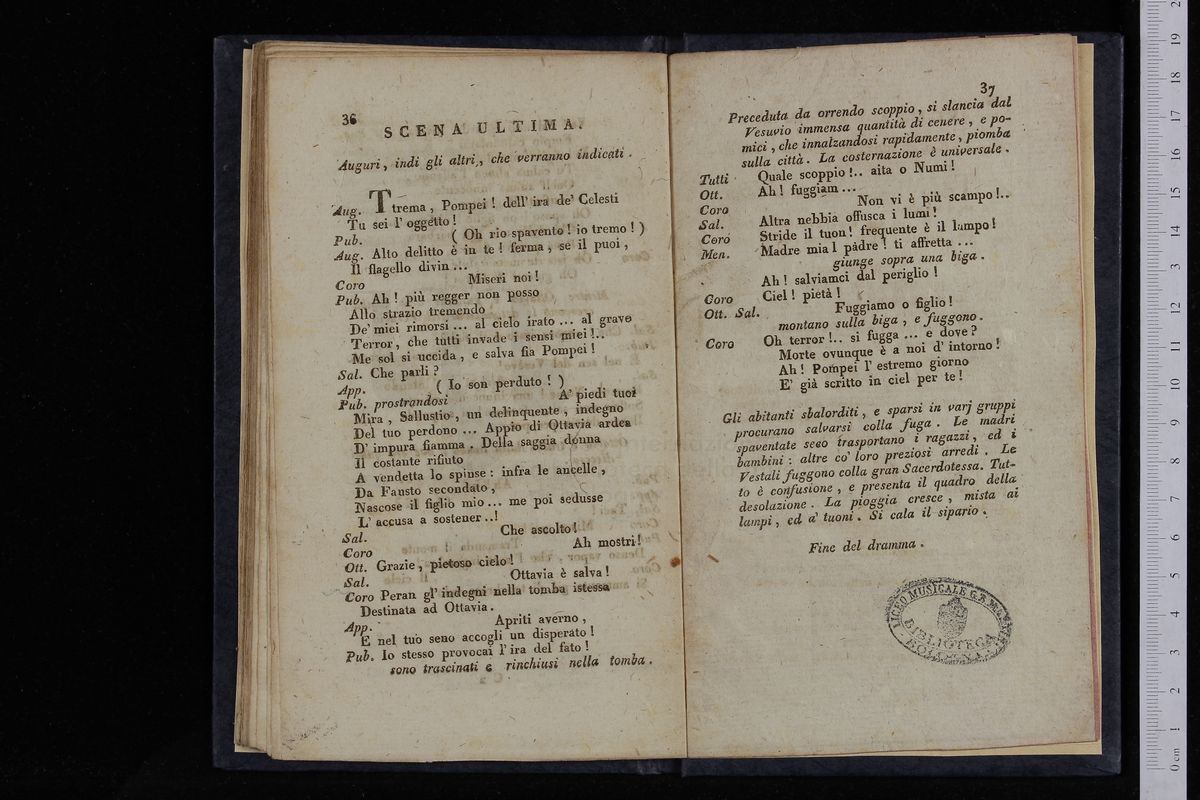 36
SCENA ULTIMA.
Auguri, indi gli altri, che verranno indicati.
Aug. Ttrema, Pompei! dell' ira de' Celesti
Tu sei l' oggetto!
Pub. ( Oh rio spavento! io tremo! )
Aug. Alto delitto è in te! ferma, se il puoi,
Il flagello divin...
Coro Miseri noi!
Pub. Ah! più regger non posso
Allo strazio tremendo
De' miei rimorsi... al cielo irato... al grave
Terror, che tutti invade i sensi miei!..
Me sol si uccida, e salva fia Pompei!
Sal. Che parli?
App. ( Io son perduto! )
Pub. prostrandosi A' piedi tuoi
Mira, Sallustio, un delinquente, indegno
Del tuo perdono... Appio di Ottavia ardea
D' impura fiamma. Della saggia donna
Il costante rifiuto
A vendetta lo spinse: infra le ancelle,
Da Fausto secondato,
Nascose il figlio mio... me poi sedusse
L' accusa a sostener..!
Sal. Che ascolto!
Coro Ah mostri!
Ott. Grazie, pietoso cielo!
Sal. Ottavia è salva!
Coro Peran gl' indegni nella tomba istessa
Destinata ad Ottavia.
App. Apriti averno,
E nel tuo seno accogli un disperato!
Pub. Io stesso provocai l' ira del fato!
sono trascinati e rinchiusi nella tomba.
37
Preceduta da orrendo scoppio, si slancia dal
Vesuvio immensa quantità di cenere, e po-
mici, che innalzandosi rapidamente, piomba
sulla città. La costernazione è universale.
Tutti Quale scoppio!.. aita o Numi!
Ott. Ah! fuggiam...
Coro Non vi è più scampo!..
Sal. Altra nebbia offusca i lumi!
Coro Stride il tuon! frequente è il lampo!
Men. Madre mia! padre! ti affretta...
giunge sopra una biga.
Ah! salviamci dal periglio!
Coro Ciel! pietà!
Ott. Sal. Fuggiamo o figlio!
montano sulla biga, e fuggono.
Coro Oh terror!.. si fugga... e dove?
Morte ovunque è a noi d' intorno!
Ah! Pompei l' estremo giorno
E' già scritto in ciel per te!
Gli abitanti sbalorditi, e sparsi in varj gruppi
procurano salvarsi colla fuga. Le madri
spaventate seco trasportano i ragazzi, ed i
bambini: altre co' loro preziosi arredi. Le
Vestali fuggono colla gran Sacerdotessa. Tut-
to è confusione, e presenta il quadro della
desolazione. La pioggia cresce, mista ai
lampi, ed a' tuoni. Si cala il sipario.
Fine del dramma.
LICEO MUSICALE G. B. MARTINI
BIBLIOTECA
BOLOGNA
0 cm 1 2 3 4 5 6 7 8 9 10 11 12 13 14 15 16 17 18 19